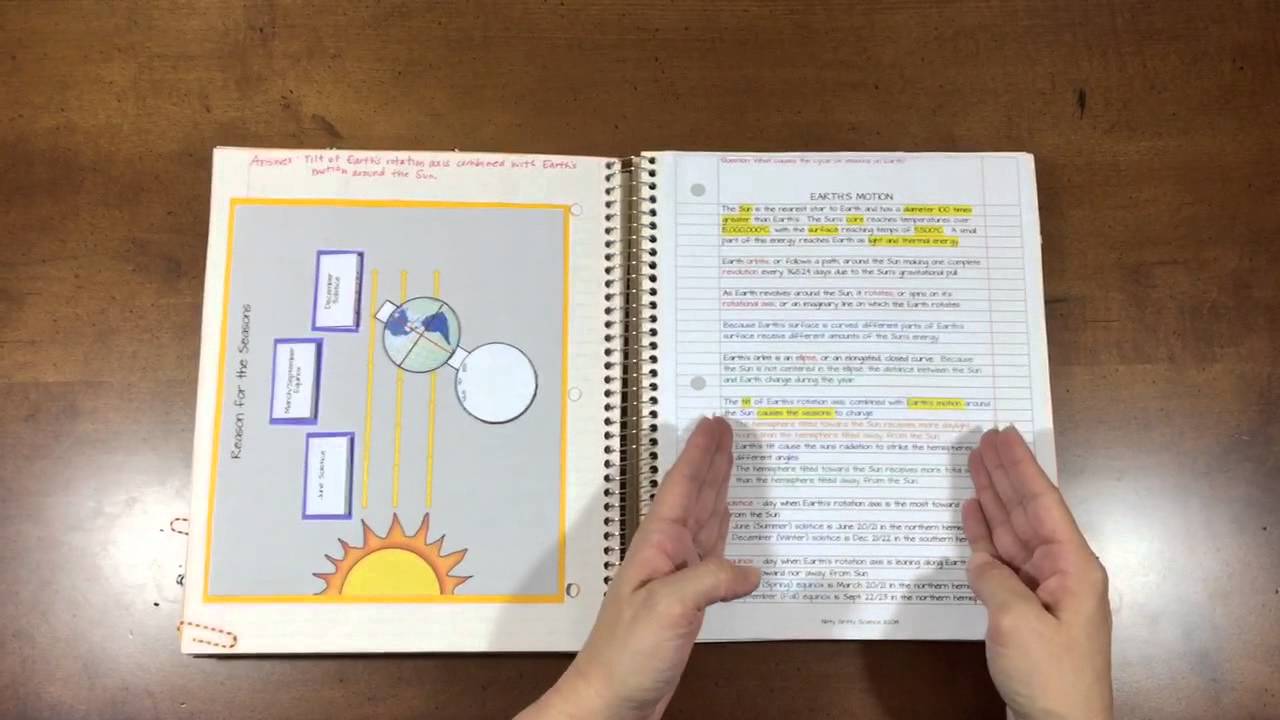 Answer: Tilt of Earth's rotation axis combined with Earth's
motion around the Sun.
Reason for the Seasons
December
Solstice
March/September
Equinox
June Solstice
Question: What causes the cycle of seasons on Earth?
EARTH'S MOTION
The Sun is the nearest star to Earth and has a diameter 100 times
greater than Earth's. The Sun's core reaches temperatures over
15,000,000°C, with the surface reaching temps of 5,500°C. A small
part of this energy reaches Earth as light and thermal energy.
Earth orbits, or follows a path, around the Sun making one complete
revolution every 365.24 days due to the Sun's gravitational pull.
As Earth revolves around the Sun, it rotates, or spins on its
rotational axis, or an imaginary line on which the Earth rotates.
Because Earth's surface is curved, different parts of Earth's
surface receive different amounts of the Sun's energy.
Earth's orbit is an ellipse, or an elongated, closed curve. Because
the Sun is not centered in the ellipse, the distance between the Sun
and Earth change during the year.
The tilt of Earth's rotation axis combined with Earth's motion around
the Sun causes the seasons to change.
The hemisphere tilted toward the Sun receives more daylight
hours than the hemisphere tilted away from the Sun.
Earth's tilt cause the sun's radiation to strike the hemispheres
different angles
The hemisphere tilted toward the Sun recieves more total
than the hemisphere tilted away from the Sun.
solstice - day when Earth's rotation axis is the most toward
from the Sun
June (Summer) solstice is June 20/21 in the northern hemis
December (Winter) solstice is Dec. 21/22 in the southern he
equinox - day when Earth's rotation axis is leaning along Earth
toward nor away from Sun
(Spring) equinox is March 20/21 in the northern hemis
(Fall) equinox is Sept 22/23 in the northern hemis
Nitty Gritty Science